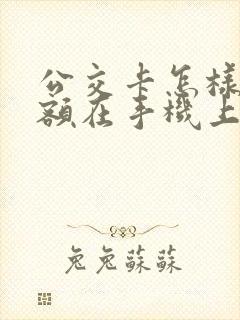 公交卡怎樣
額在手機上
兔兔蘇蘇